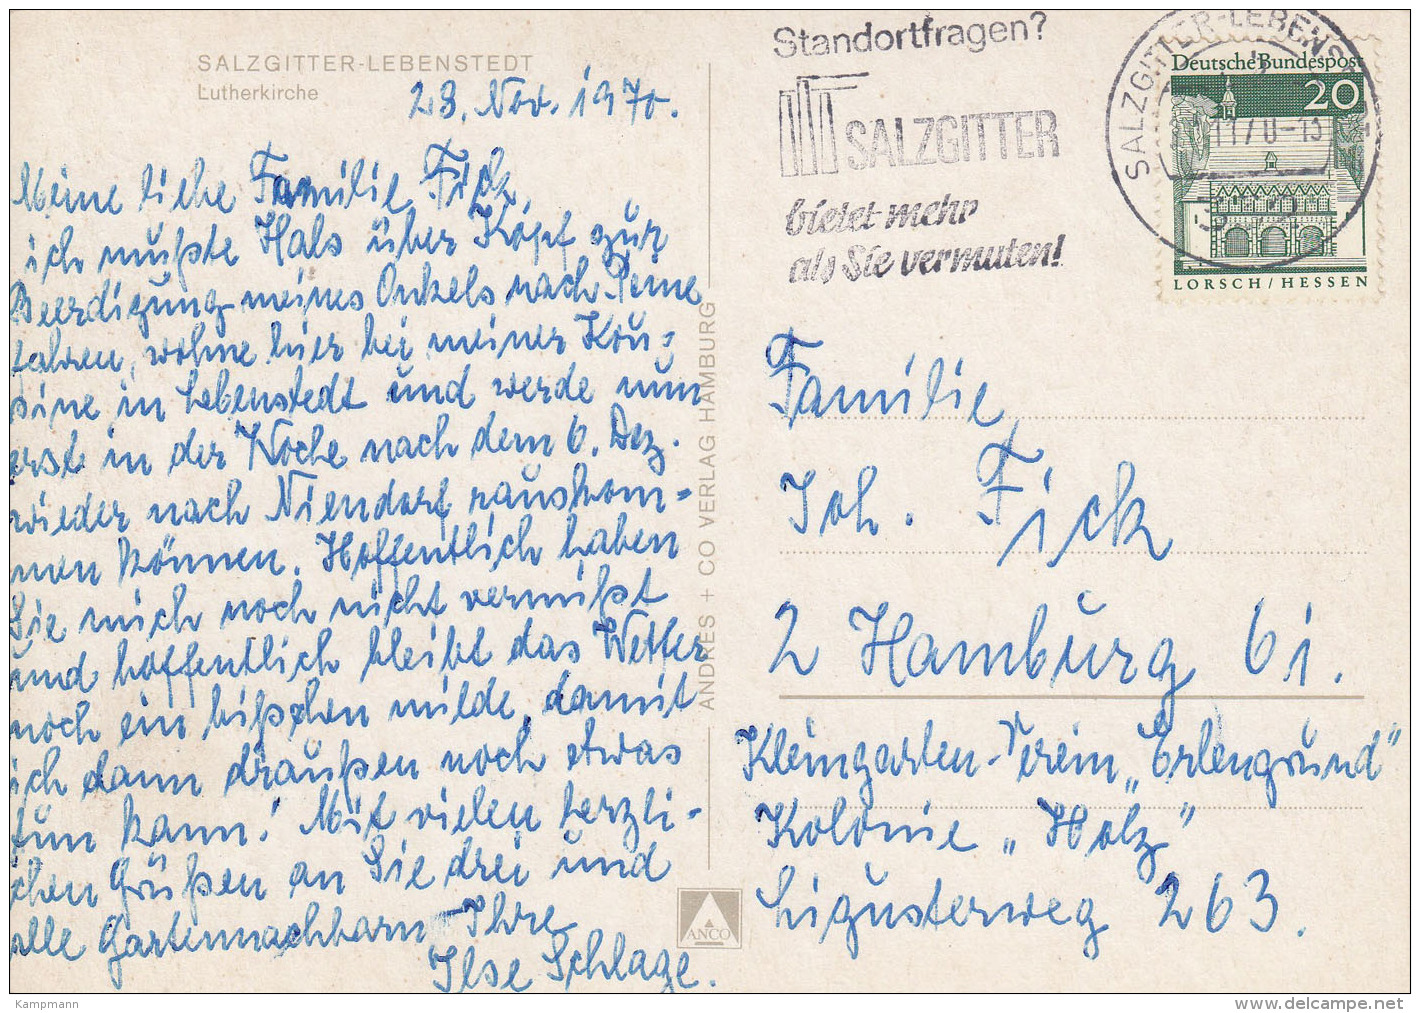 SALZGITTER-LEBENSTEDT
Lutherkirche
28. Nov. 1970.
Meine liebe Familie Fick,
ich mußte Hals über Kopf zur
Beerdigung meines Onkels nach Peine
fahren, wohne hier bei meiner Kou-
sine in Lebenstedt und werde nun
erst in der Woche nach dem 6. Dez.
wieder nach Niendorf rauskom-
men können. Hoffentlich haben
Sie mich noch nicht vermißt
und hoffentlich bleibt das Wetter
noch ein bißchen milde, damit
ich dann draußen noch etwas
tun kann! Mit vielen herzli-
chen Grüßen an Sie drei und
alle Gartennachbarn Ihre
Ilse Schlage.
ANDRES + CO VERLAG HAMBURG
ANCO
Standortfragen?
SALZGITTER
bietet mehr
als Sie vermuten!
SALZGITTER-LEBENST
11 70-13
Deutsche Bundespost
20
LORSCH/HESSEN
Familie
Joh. Fick
2 Hamburg 61.
Kleingarten-Verein „Erlengrund"
Kolonie „Holz"
Ligusterweg 263.
Kampmann
www.delcampe.net